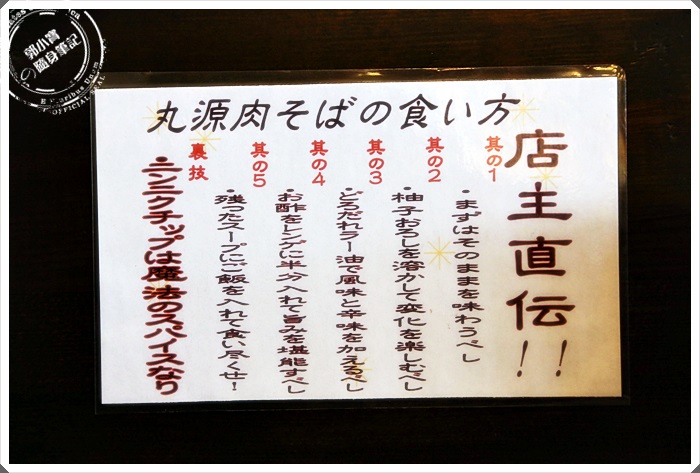 丸源肉そばの食い方
店主直伝!!
其の1
・まずはそのままを味わうべし
其の2
・柚子おろしを溶かして変化を楽しむべし
其の3
・どろだれラー油で風味と辛味を加えるべし
其の4
・お酢をレンゲに半分入れて旨みを堪能すべし
其の5
・残ったスープにご飯を入れて食い尽くせ!
裏技
・ニンニクチップは魔法のスパイスなり
郭小寶
の隨身筆記